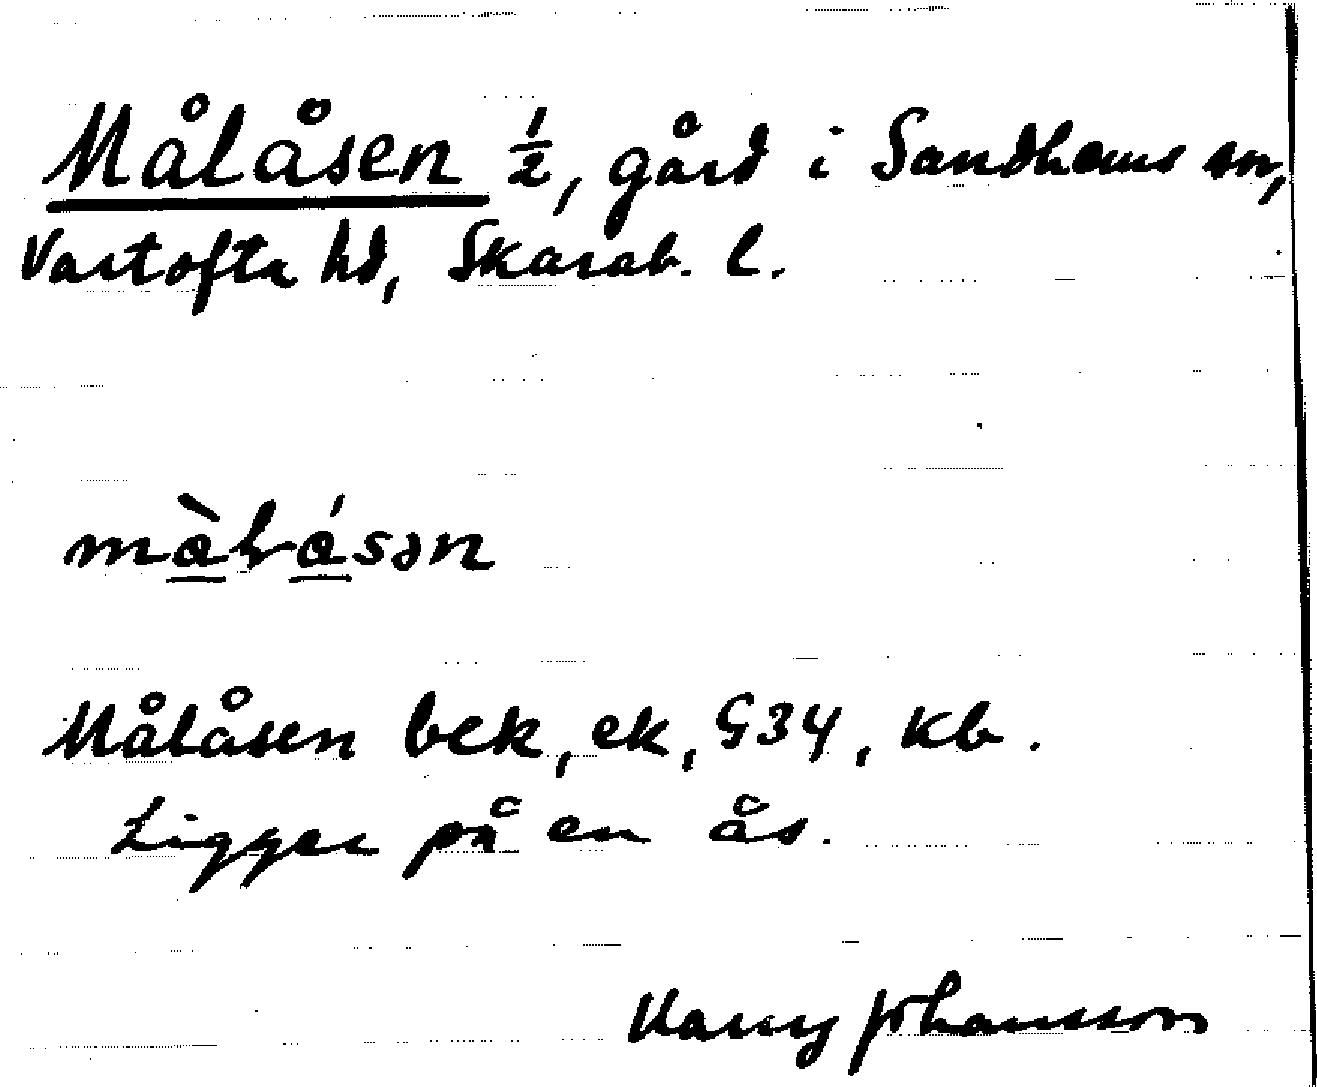 Målåsen ½, gård i Sandhems sn,
Vartofta hd, Skarab. l.
mà̲lá̲sən
Målåsen bek, ek, G34, kb.
Ligger på en ås.
Harry Johansson